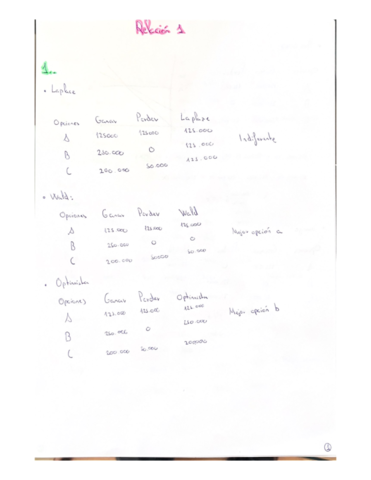 Relación 1
1.-
• Laplace
Opciones Ganar Perder Laplace
A 125000 125.000 125.000 Indiferente
B 250.000 0 125.000
C 200.000 50.000 125.000
• Wald:
Opciones Ganar Perder Wald
A 125.000 125.000 125.000 Mejor opción a
B 250.000 0 0
C 200.000 50.000 50.000
• Optimista
Opciones Ganar Perder Optimista
A 125.000 125.000 125.000
B 250.000 0 250.000 Mejor opción b
C 200.000 50.000 200.000